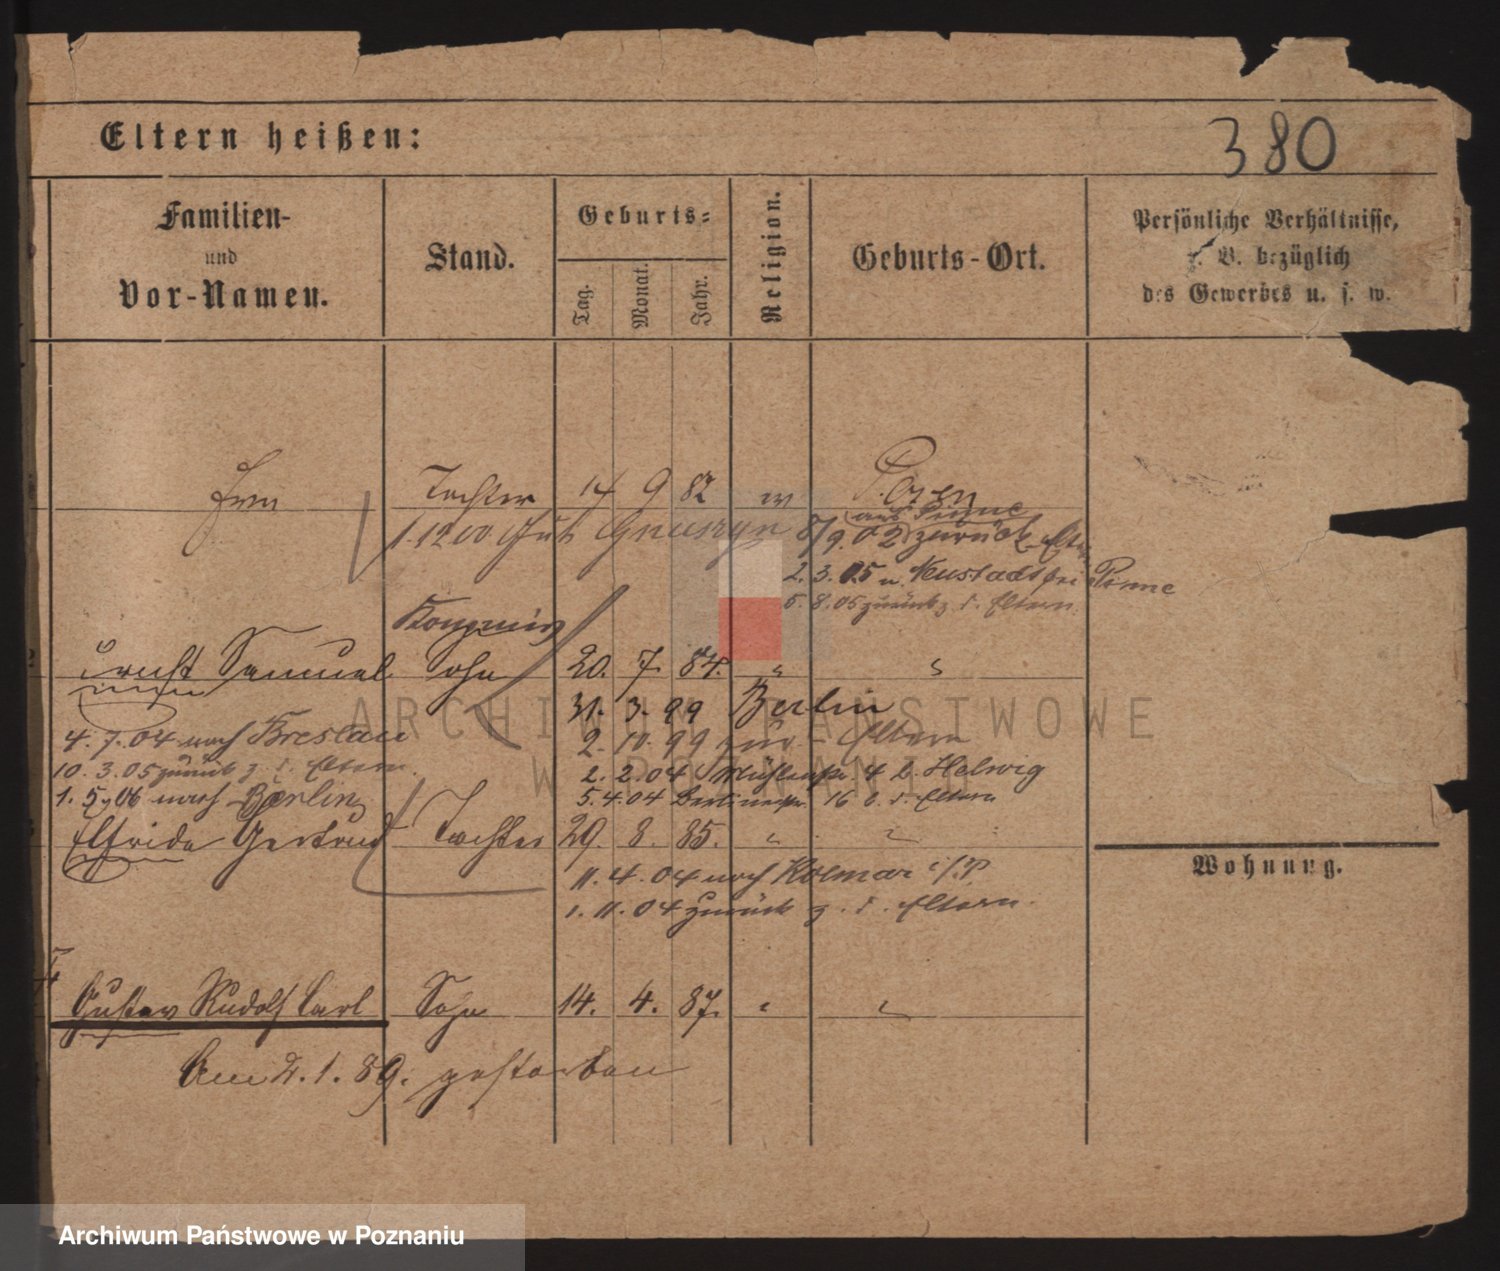 380
Eltern heißen:
Familien- und Vor-Namen.
Stand.
Geburts-
Tag.
Monat.
Jahr.
Religion.
Geburts-Ort.
Persönliche Verhältnisse,
z. B. bezüglich
des Gewerbes u. s. w.
Tochter 9 82 Posen
aus Pinne
8/9. 02 zurück Eltern
2. 3. 05 n. Neustadt bei Pinne
5. 8. 05 zurück z. d. Eltern
Samuel Sohn 20. 7. 84. " "
31. 3. 99 Berlin
4. 7. 04 nach Breslau
2. 10. 99 zur. Eltern
10. 3. 05 zurück z. d. Eltern.
2. 2. 04 Mühlenstr. 4 b. Helwig
1. 5. 06 nach Berlin
5. 4. 04 16 b. d. Eltern
Elfride Gertrud Tochter 29. 8. 85. " "
11. 4. 04 nach Kolmar i/P.
1. 11. 04 zurück z. d. Eltern.
Gustav Rudolf Carl Sohn 14. 4. 87. " "
Am 2. 1. 89. gestorben
Wohnung.
ARCHIWUM PAŃSTWOWE
W POZNANIU
Archiwum Państwowe w Poznaniu